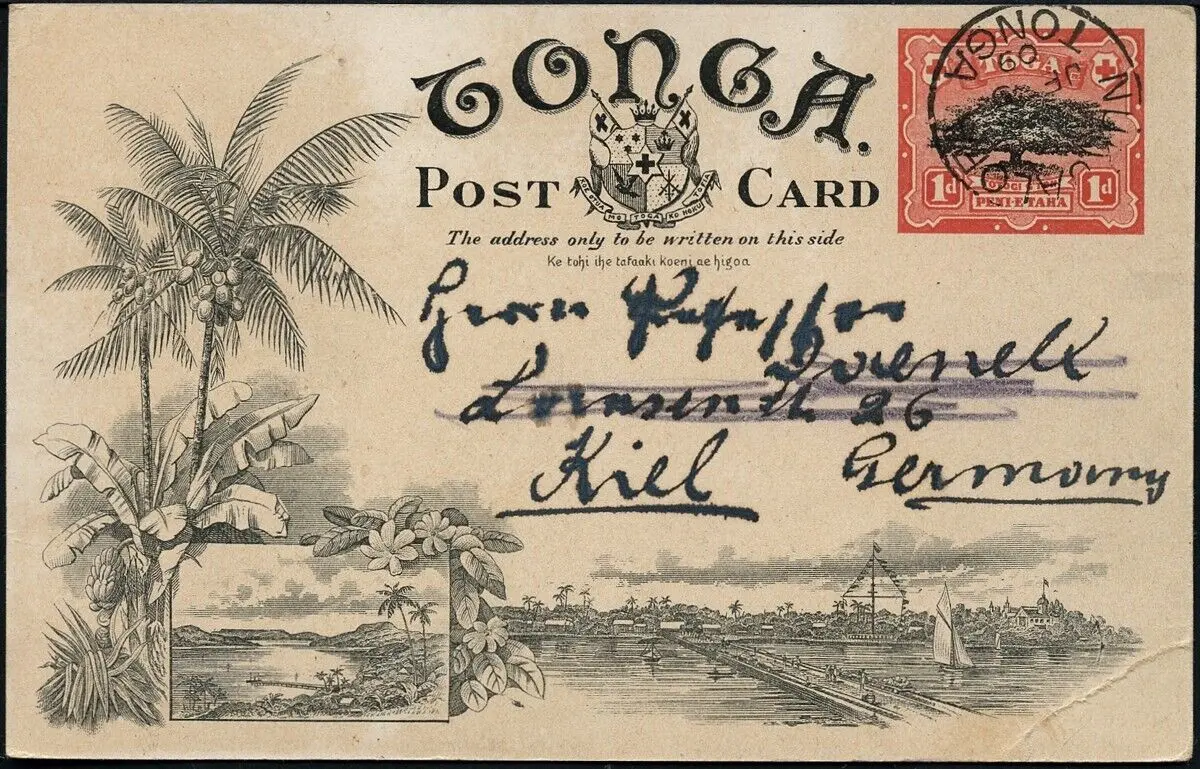 TONGA.
POST CARD
KOE OTUA MO TOGA KO HOKU TOFIA
The address only to be written on this side
Ke tohi ihe tafaaki koeni ae higoa
TOGA
1d 1d
PENI-E-TAHA
TONGA
09
Herrn Professor
Daenell
Kiel Germany
26